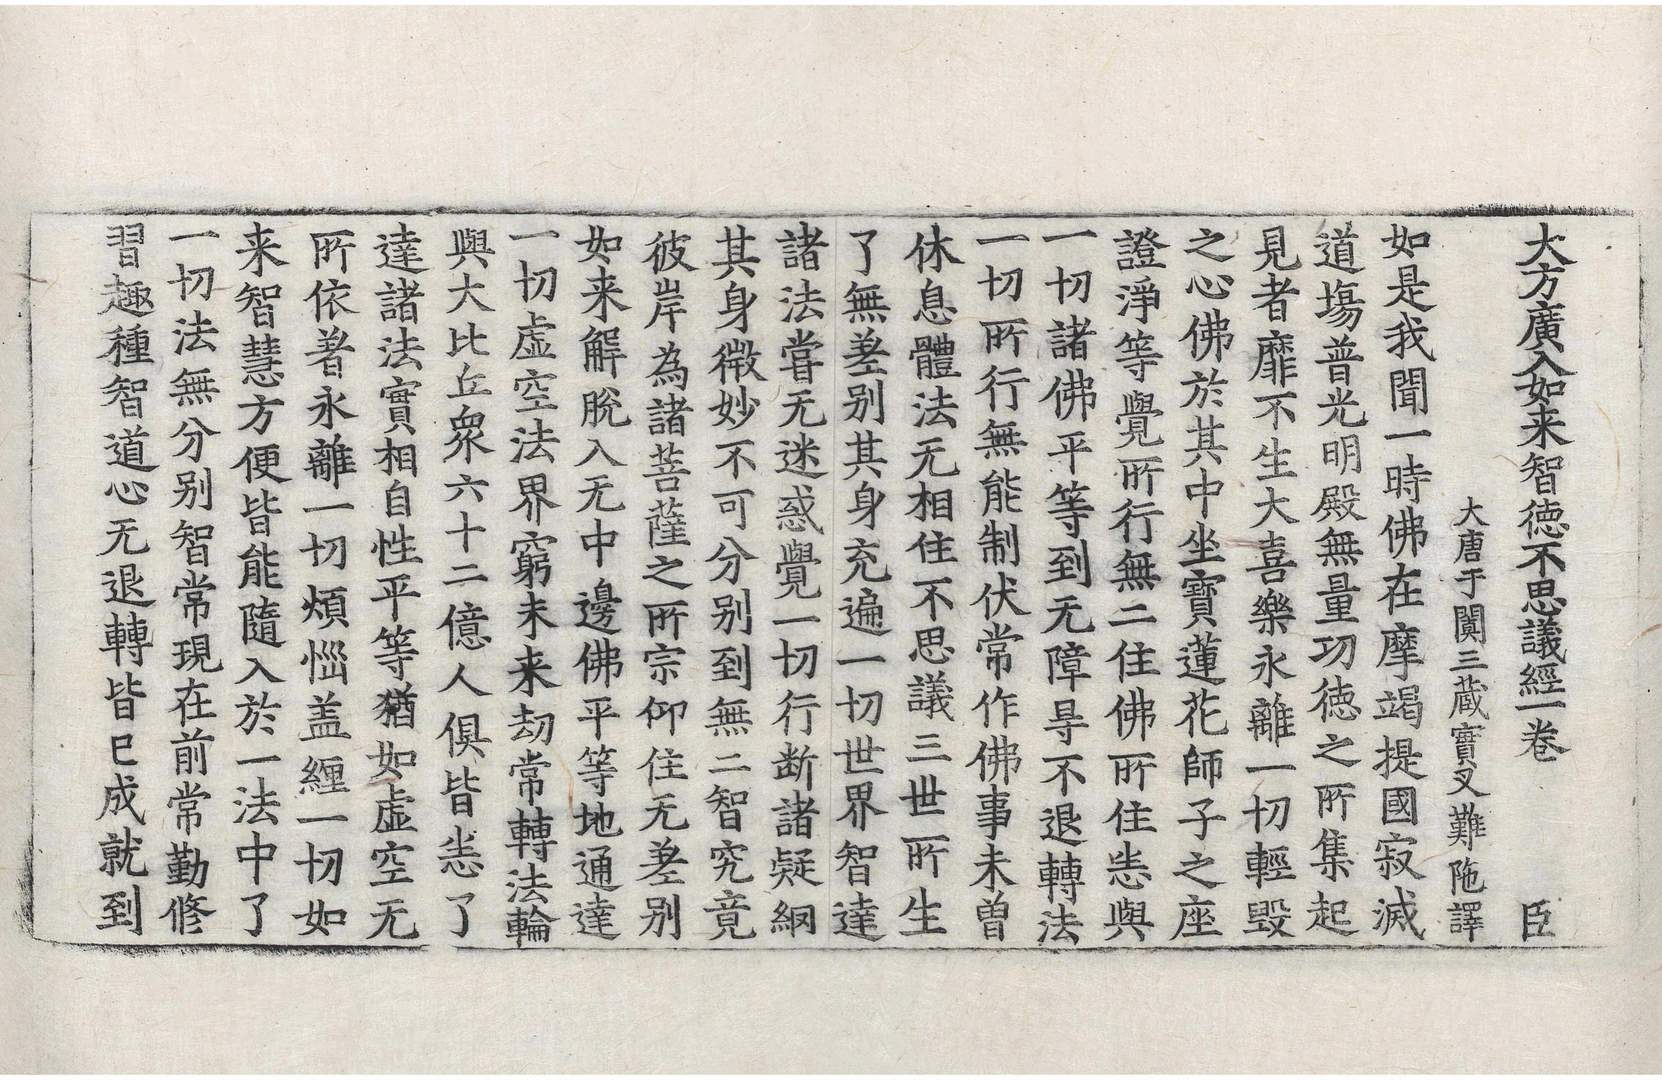 大方廣入如来智徳不思議經一卷　臣
大唐于闐三藏實叉難陁譯
如是我聞一時佛在摩竭提國寂滅
道塲普光明殿無量功徳之所集起
見者靡不生大喜樂永離一切輕毀
之心佛於其中坐寶蓮花師子之座
證淨等覺所行無二住佛所住悉與
一切諸佛平等到无障㝵不退轉法
一切所行無能制伏常作佛事未曽
休息體法无相住不思議三世所生
了無差别其身充遍一切世界智達
諸法嘗无迷惑覺一切行断諸疑網
其身微妙不可分别到無二智究竟
彼岸為諸菩薩之所宗仰住无差别
如来解脫入无中邊佛平等地通達
一切虚空法界窮未来刧常轉法輪
與大比丘衆六十二億人俱皆悉了
達諸法實相自性平等猶如虚空无
所依著永離一切煩惱盖纒一切如
来智慧方便皆能隨入於一法中了
一切法無分别智常現在前常勤修
習趣種智道心无退轉皆已成就到